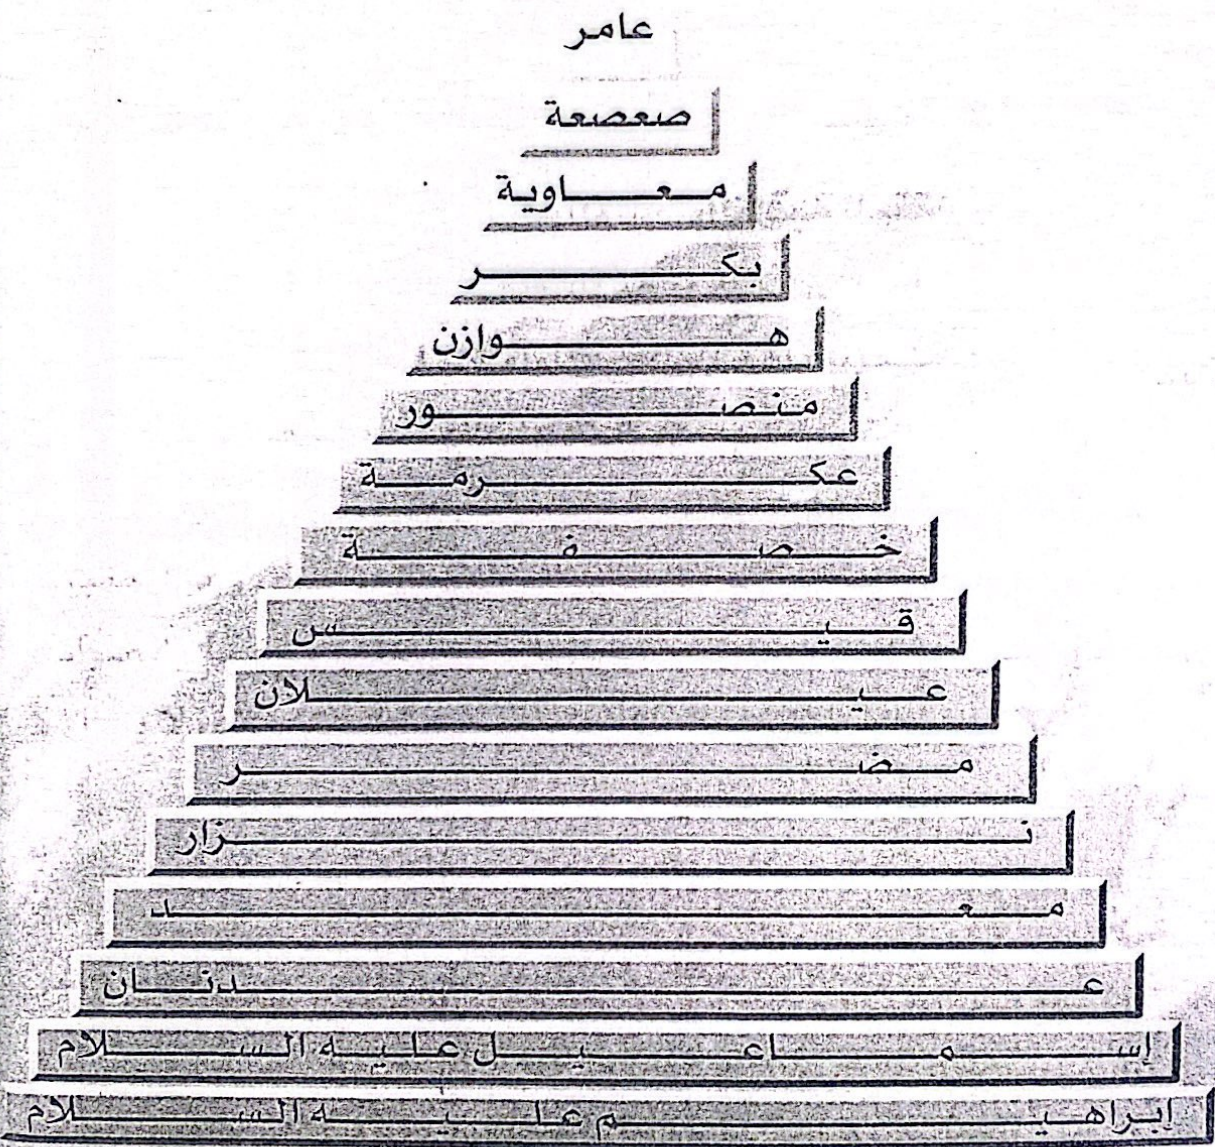 عامر
صعصعة
معاوية
بكر
هوازن
منصور
عكرمة
خصفة
قيس
عيلان
مضر
نزار
معد
عدنان
إسماعيل عليه السلام
ابراهيم عليه السلام